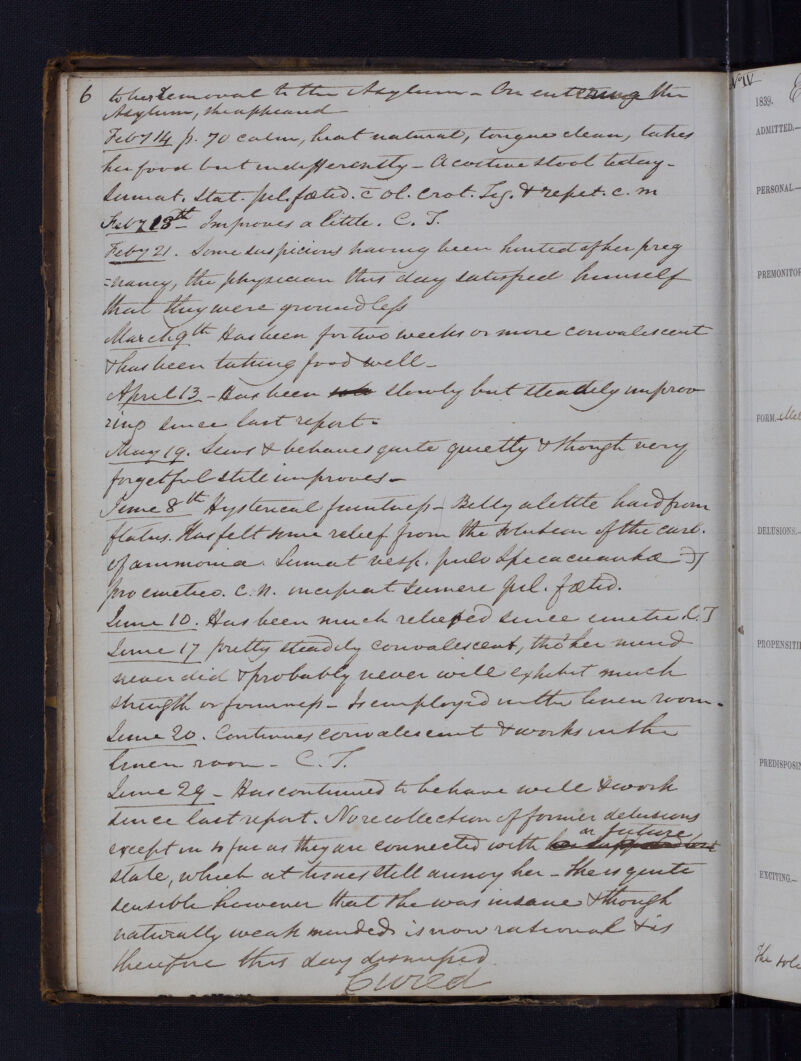 6 to her removal to the Asylum - On entering the
Asylum, she appeared
Feby 14 p. 70 calm, heat natural, tongue clean, takes
her food but indifferently - A costive stool today -
Sumat. Stat. pil. fœtid. c̄ ol. Crot. Tig. & repet. c. m
Feby 18th - Improves a little. C. T.
Feby 21. Some suspicions having been hinted of her preg
=nancy, the physician this day satisfied himself
that they were groundless
March 9th Has been for two weeks or more convalescent
& has been taking food well -
April 13 - Has been slowly but steadily improv
ing since last report -
May 19. Sews & behaves quite quietly & though very
forgetful still improves -
June 8th Hysterical faintness - Belly a little hard from
flatus. Has felt some relief from the solution of the carb.
of ammonia. Sumat vesp. pulv Ipecacuanhæ ℈j
pro emetico. C. N. incipiat sumere pil. fœtid.
June 10. Has been much relieved since emetic C. T
June 17 pretty steadily convalescent, tho' her mind
never did & probably never will exhibit much
strength or firmness - Is employed in the linen room -
June 20. Continues convalescent & works in the
linen room - C. T.
June 29 - Has continued to behave well & work
since last report. No recollection of former delusions
except in so far as they are connected with her future
state, which at times still annoy her - She is quite
sensible however that she was insane & though
naturally weak minded is now rational & is
therefore this day dismissed
Cured
No IV
1839.
ADMITTED.—
PERSONAL—
PREMONITOR
FORM.— Mel
DELUSIONS.—
PROPENSITI
PREDISPOSIN
EXCITING.—
The